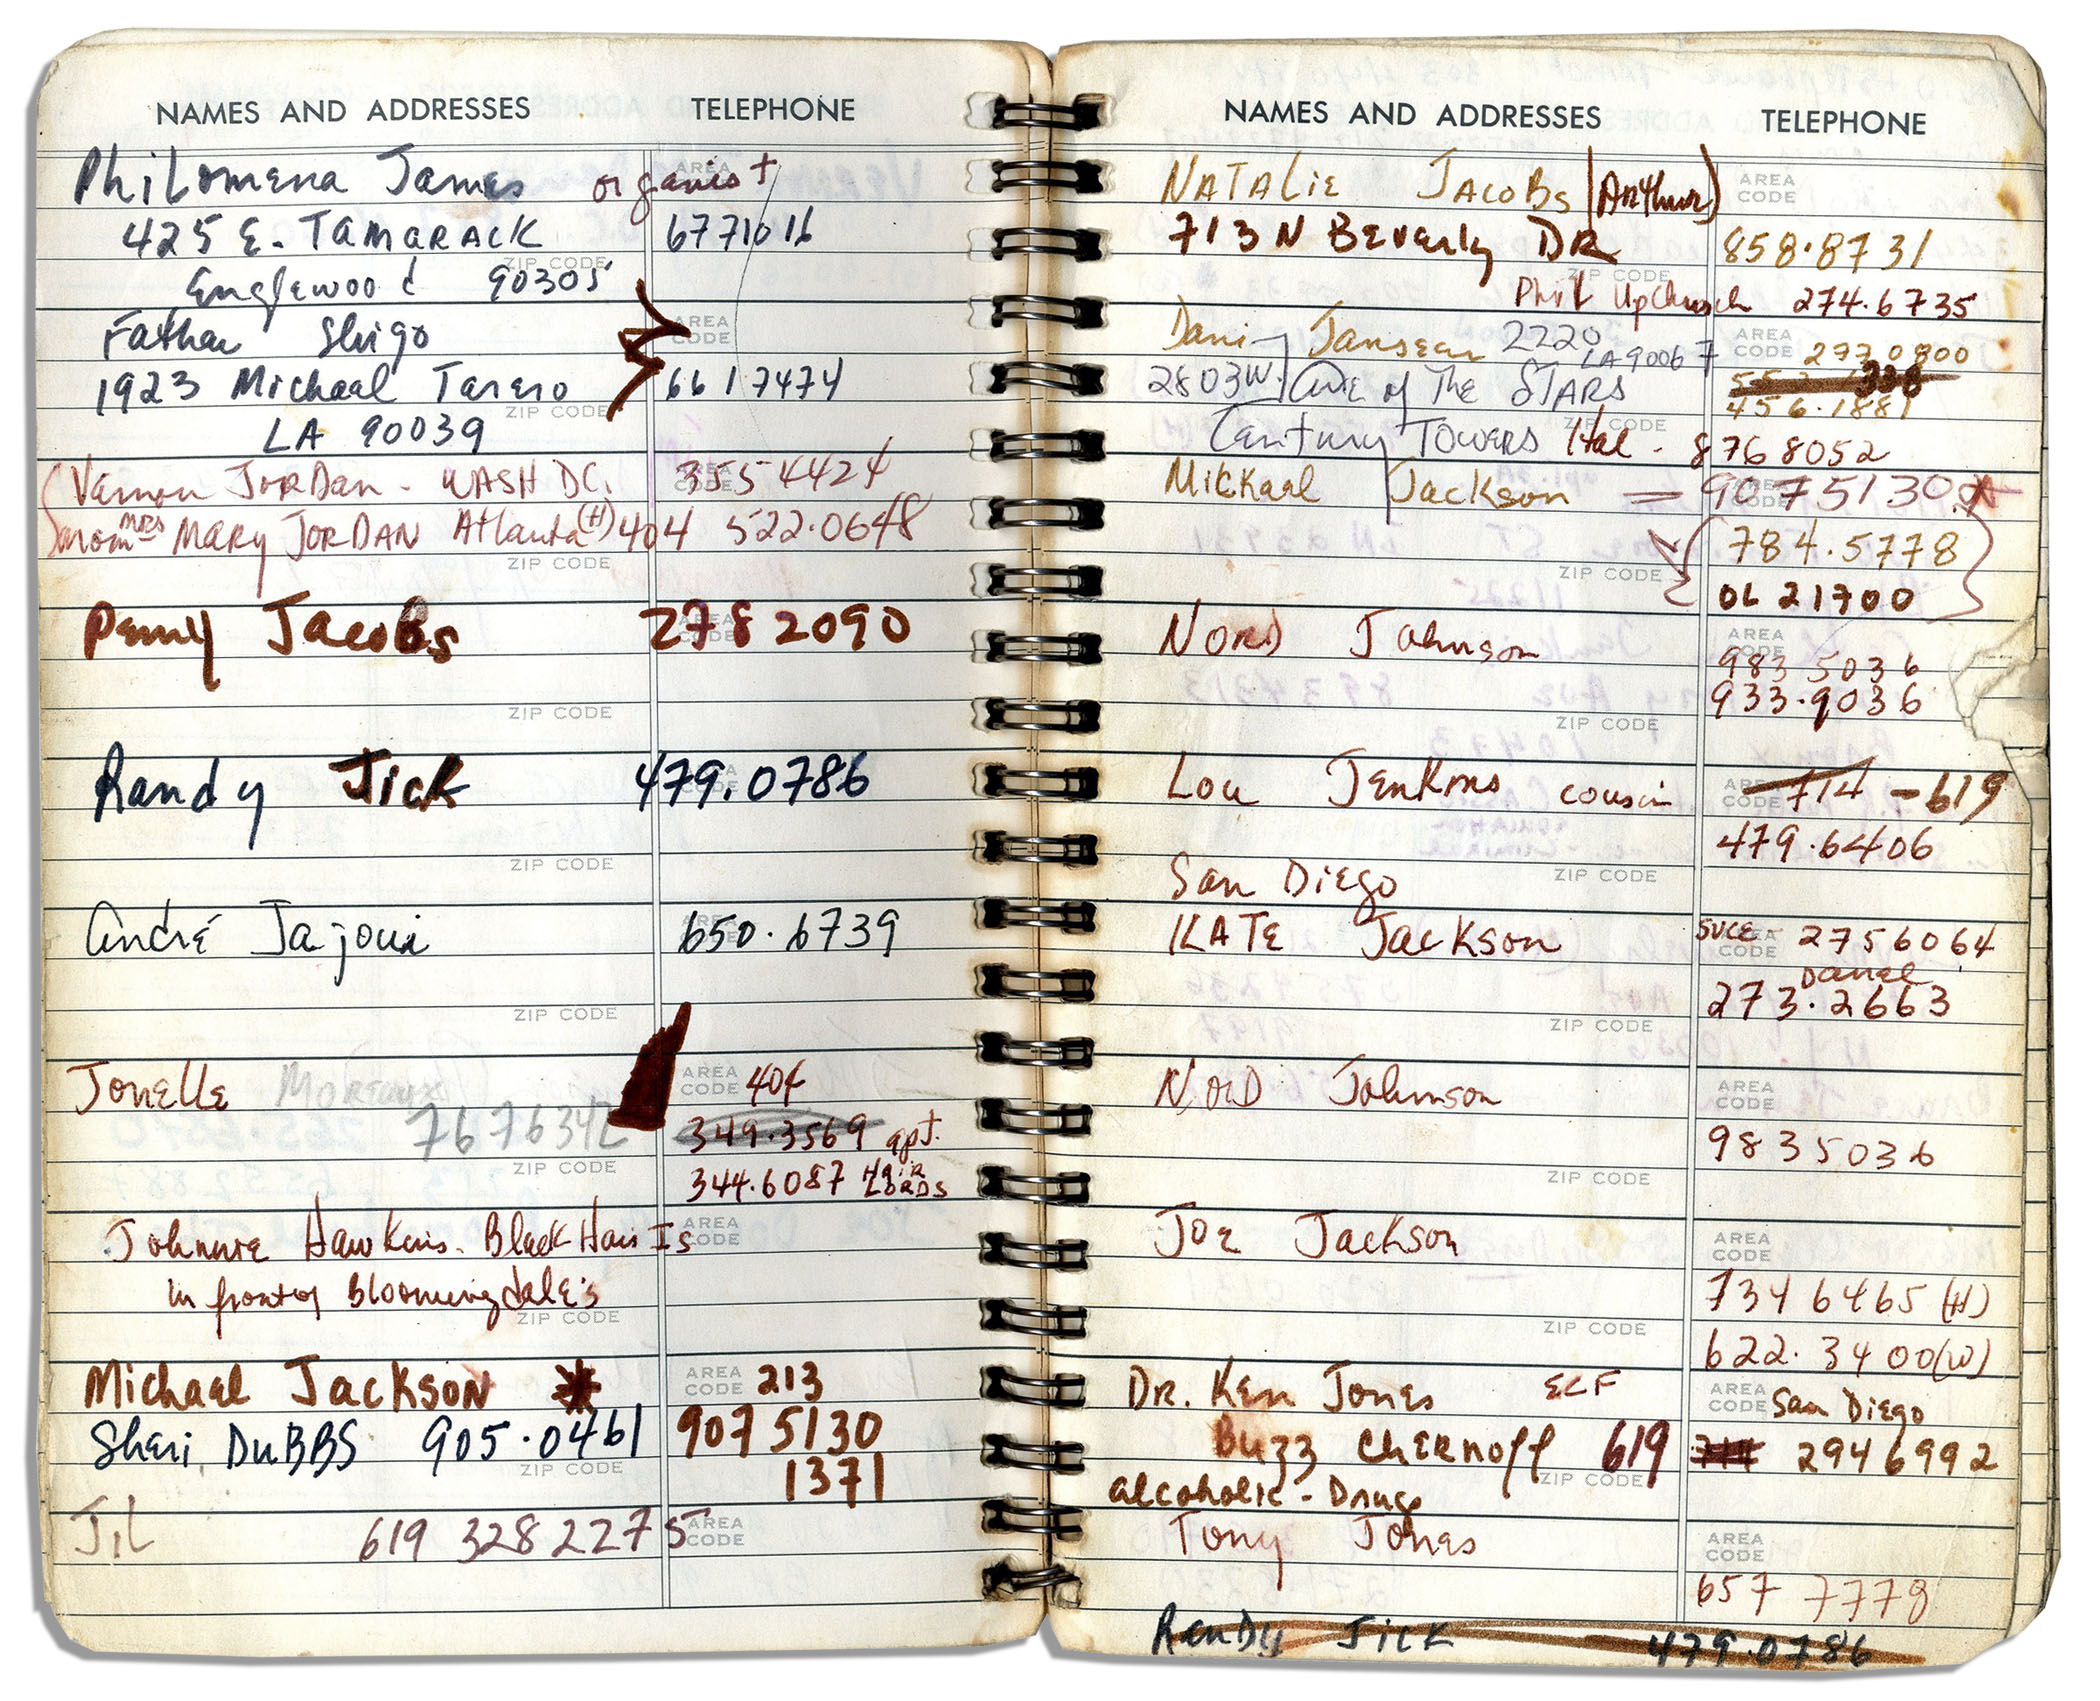 NAMES AND ADDRESSES TELEPHONE
Philomena James organist
AREA CODE
425 E. TAMARACK 6771016
ZIP CODE
Englewood 90305
Father Shigo
AREA CODE
1923 Michael Torero 661 7474
ZIP CODE
LA 90039
Vernon JORDAN - WASH DC. 355 4424
AREA CODE
mom mrs MARY JORDAN Atlanta (H) 404 522.0648
ZIP CODE
Penny Jacobs 278 2090
AREA CODE
ZIP CODE
Randy Jick 479.0786
AREA CODE
ZIP CODE
André Jajoui 650.6739
AREA CODE
ZIP CODE
Jonelle Moreaux AREA CODE 404
7676342 349.3569 apt.
ZIP CODE
344.6087 HAIR LORDS
Johnnie Hawkins. Black Hair Is
AREA CODE
in front of Bloomingdale's
ZIP CODE
Michael Jackson * AREA CODE 213
Sheri DuBBS 905.0461 907 5130
ZIP CODE
1371
JIL 619 328 2275
AREA CODE
NAMES AND ADDRESSES TELEPHONE
NATALIE JACOBS (Arthur)
AREA CODE
713 N Beverly DR 858.8731
ZIP CODE
Phil Upchurch 274.6735
Dani Janssen 2220 LA 90067
AREA CODE 277 0800
2803W. Ave of The STARS 553 338
456.1881
ZIP CODE
Century Towers Hal - 876 8052
Michael Jackson = 907 5130
AREA CODE
784.5778
ZIP CODE
OL 21700
NORD Johnson
AREA CODE
983 5036
933.9036
ZIP CODE
Lou Jenkins cousin AREA CODE 714 - 619
479.6406
ZIP CODE
San Diego
KATE Jackson SUCE - 2756064
AREA CODE
Daniel
273.2663
ZIP CODE
NORD Johnson
AREA CODE
983 5036
ZIP CODE
JOE Jackson
AREA CODE
734 6465 (H)
ZIP CODE
622.3400 (W)
DR. Ken Jones ECF AREA CODE San Diego
Buzz Chernoff 619 714 2946992
ZIP CODE
alcoholic - Drugs
Tony Jones
AREA CODE
657 7778
Randy Jick 479.0786